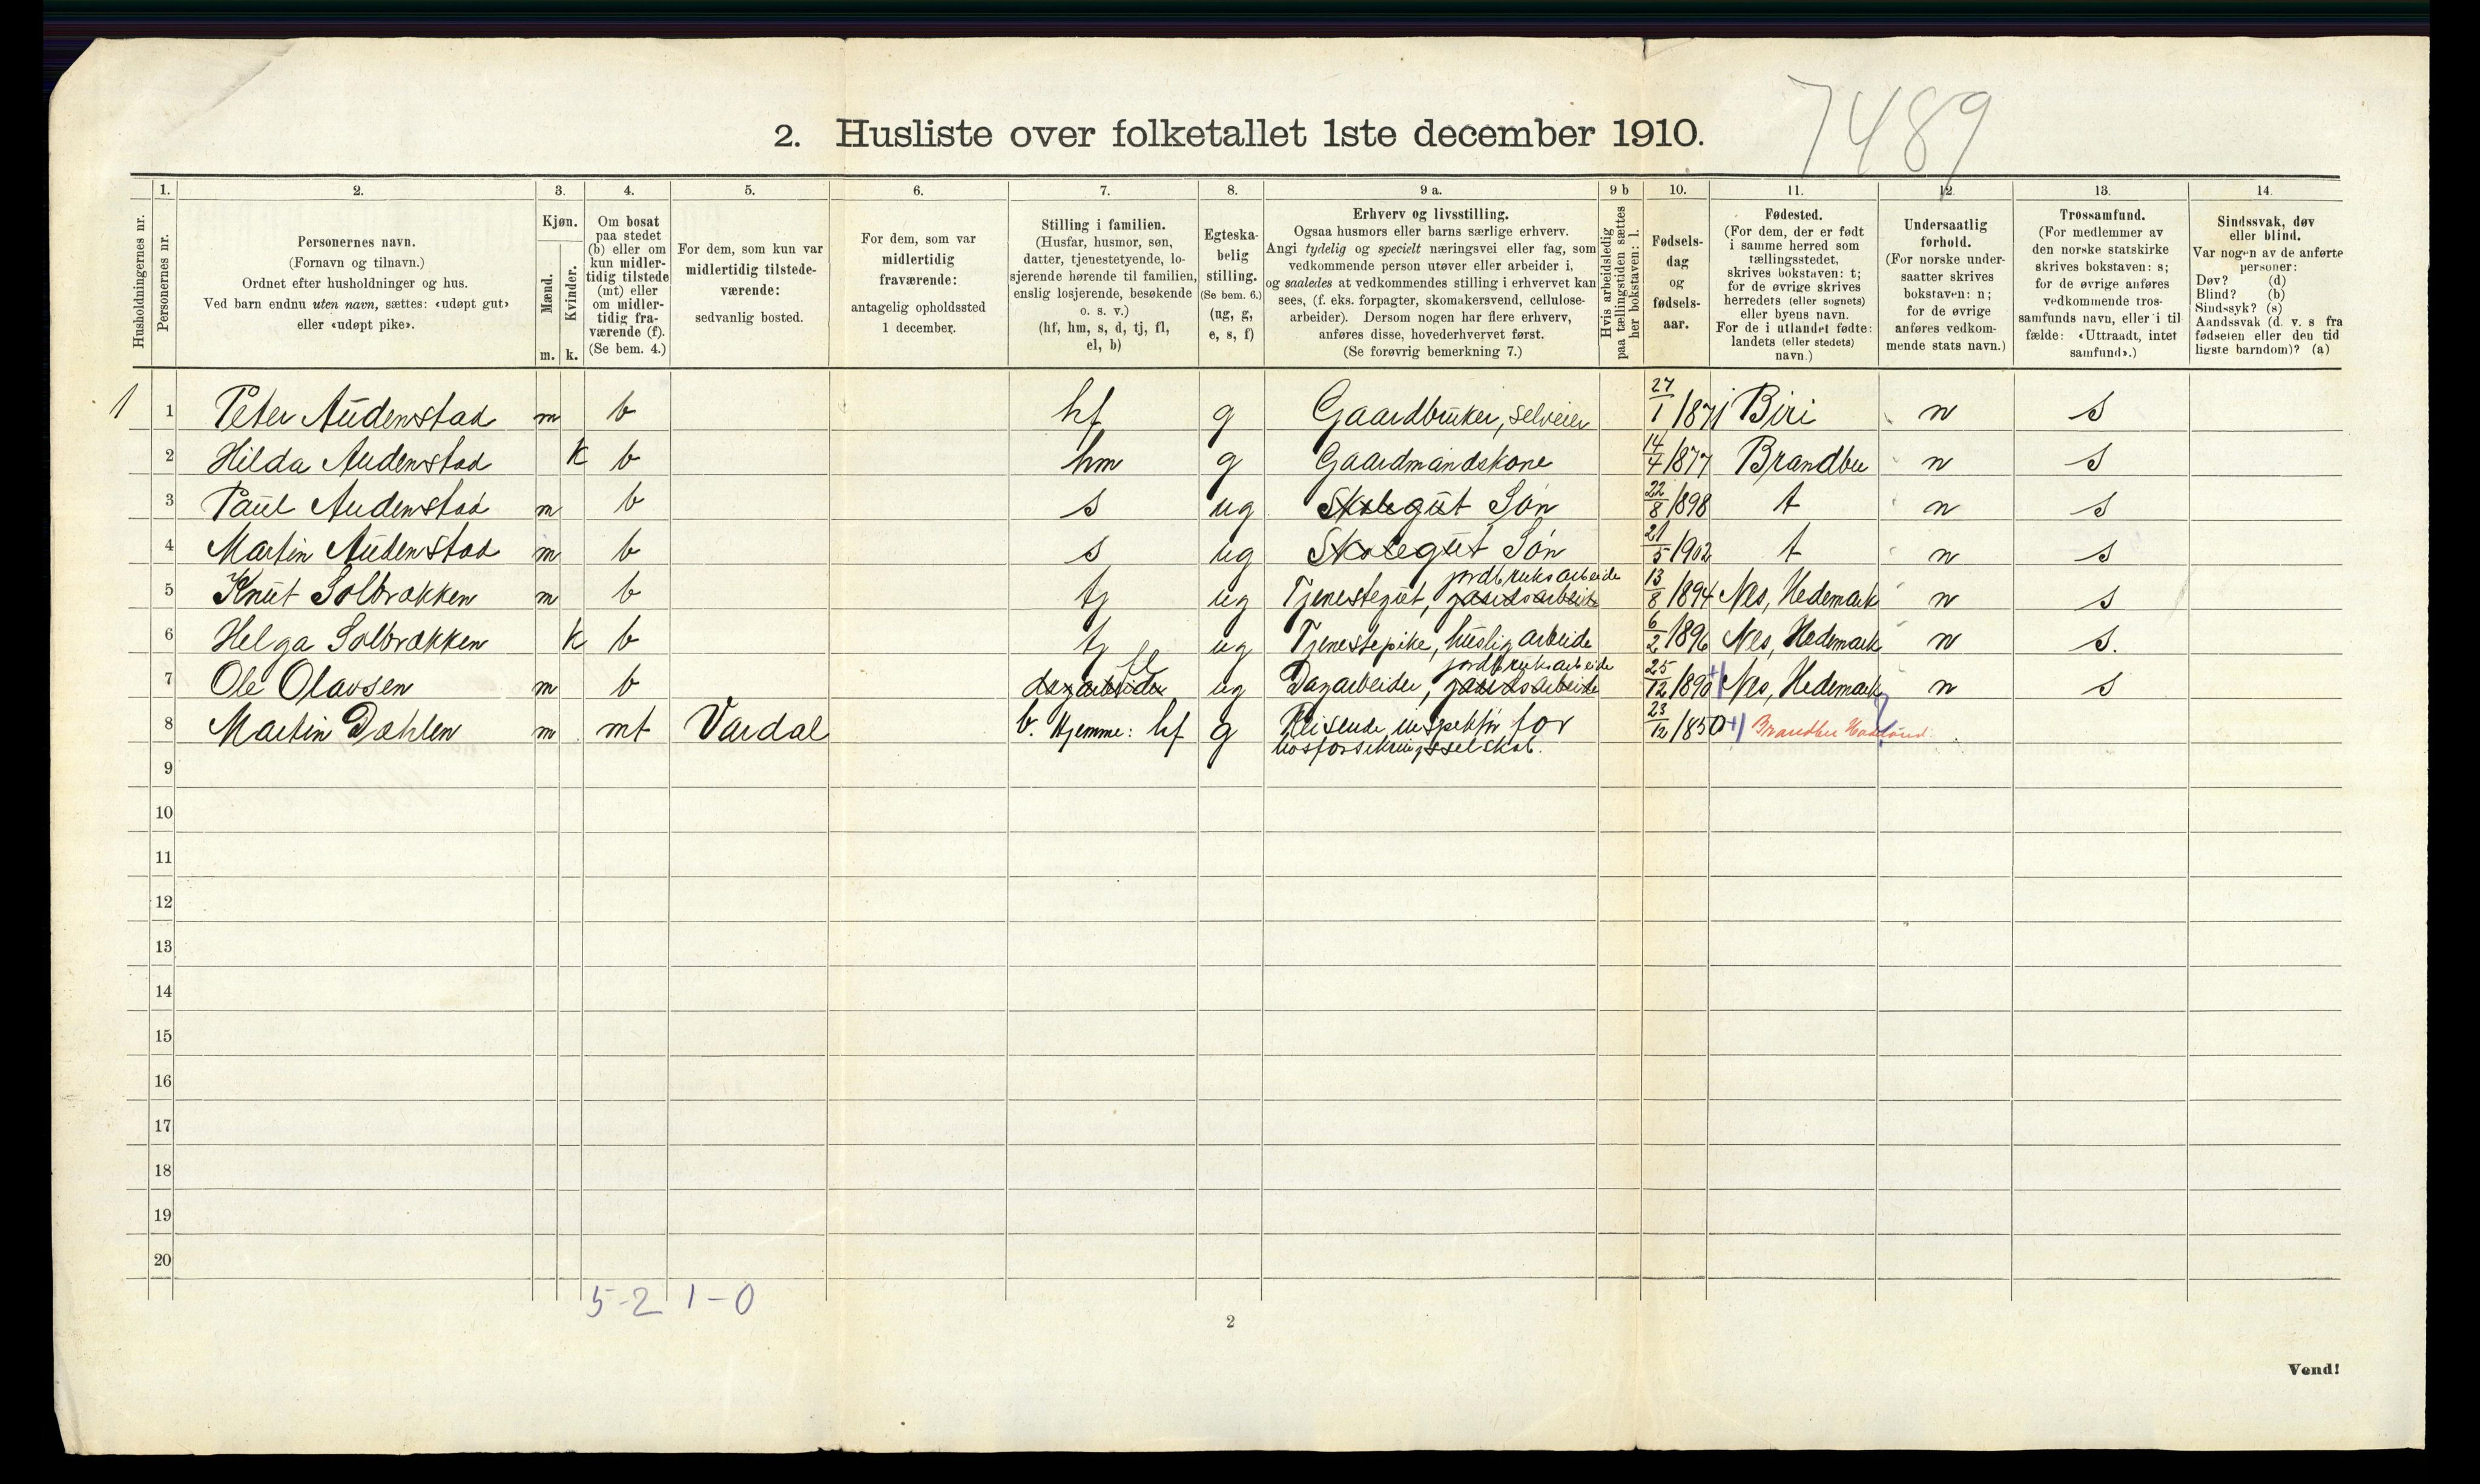 7489
2. Husliste over folketallet 1ste december 1910.
Husholdningernes nr.
1. Personernes nr.
2. Personernes navn.
(Fornavn og tilnavn.)
Ordnet efter husholdninger og hus.
Ved barn endnu uten navn, sættes: «udøpt gut»
eller «udøpt pike».
3. Kjøn.
Mænd. m.
Kvinder. k.
4. Om bosat
paa stedet
(b) eller om
kun midler-
tidig tilstede
(mt) eller
om midler-
tidig fra-
værende (f).
(Se bem. 4.)
5. For dem, som kun var
midlertidig tilstede-
værende:
sedvanlig bosted.
6. For dem, som var
midlertidig
fraværende:
antagelig opholdssted
1 december.
7. Stilling i familien.
(Husfar, husmor, søn,
datter, tjenestetyende, lo-
sjerende hørende til familien,
enslig losjerende, besøkende
o. s. v.)
(hf, hm, s, d, tj, fl,
el, b)
8. Egteska-
belig
stilling.
(Se bem. 6.)
(ug, g,
e, s, f)
9 a. Erhverv og livsstilling.
Ogsaa husmors eller barns særlige erhverv.
Angi tydelig og specielt næringsvei eller fag, som
vedkommende person utøver eller arbeider i,
og saaledes at vedkommendes stilling i erhvervet kan
sees, (f. eks. forpagter, skomakersvend, cellulose-
arbeider). Dersom nogen har flere erhverv,
anføres disse, hovederhvervet først.
(Se forøvrig bemerkning 7.)
9 b Hvis arbeidsledig
paa tællingstiden sættes
her bokstaven: l.
10. Fødsels-
dag
og
fødsels-
aar.
11. Fødested.
(For dem, der er født
i samme herred som
tællingsstedet,
skrives bokstaven: t;
for de øvrige skrives
herredets (eller sognets)
eller byens navn.
For de i utlandet fødte:
landets (eller stedets)
navn.)
12. Undersaatlig
forhold.
(For norske under-
saatter skrives
bokstaven: n;
for de øvrige
anføres vedkom-
mende stats navn.)
13. Trossamfund.
(For medlemmer av
den norske statskirke
skrives bokstaven: s;
for de øvrige anføres
vedkommende tros-
samfunds navn, eller i til-
fælde: «Uttraadt, intet
samfund».)
14. Sindssvak, døv
eller blind.
Var nogen av de anførte
personer:
Døv? (d)
Blind? (b)
Sindssyk? (s)
Aandssvak (d. v. s fra
fødselen eller den tid
ligste barndom)? (a)
1 1 Peter Audenstad m b hf g Gaardbruker, selveier 27/1 1871 Biri n s
2 Hilda Audenstad k b hm g Gaardmandskone 14/4 1877 Brandbu n s
3 Paul Audenstad m b s ug Skolegut Søn 22/8 1898 t n s
4 Martin Audenstad m b s ug Skolegut Søn 21/5 1902 t n s
5 Knut Solbrækken m b tj ug Tjenestegut, gaardsarbeide jordbruksarbeide 13/8 1894 Nes, Hedemark n s
6 Helga Solbrækken k b tj ug Tjenestepike, huslig arbeide 6/2 1896 Nes, Hedemark n s.
7 Ole Olavsen m b dagarbeider fl ug Dagarbeider, gaardsarbeide jordbruksarbeide 25/12 1890 Nes, Hedemark n s
8 Martin Dahlen m mt Vardal b. Hjemme: hf g Reisende inspektør for 23/12 1850 Brandbu Hadeland
livsforsikringsselskab.
9
10
11
12
13
14
15
16
17
18
19
20
5-2 1-0
2
Vend!